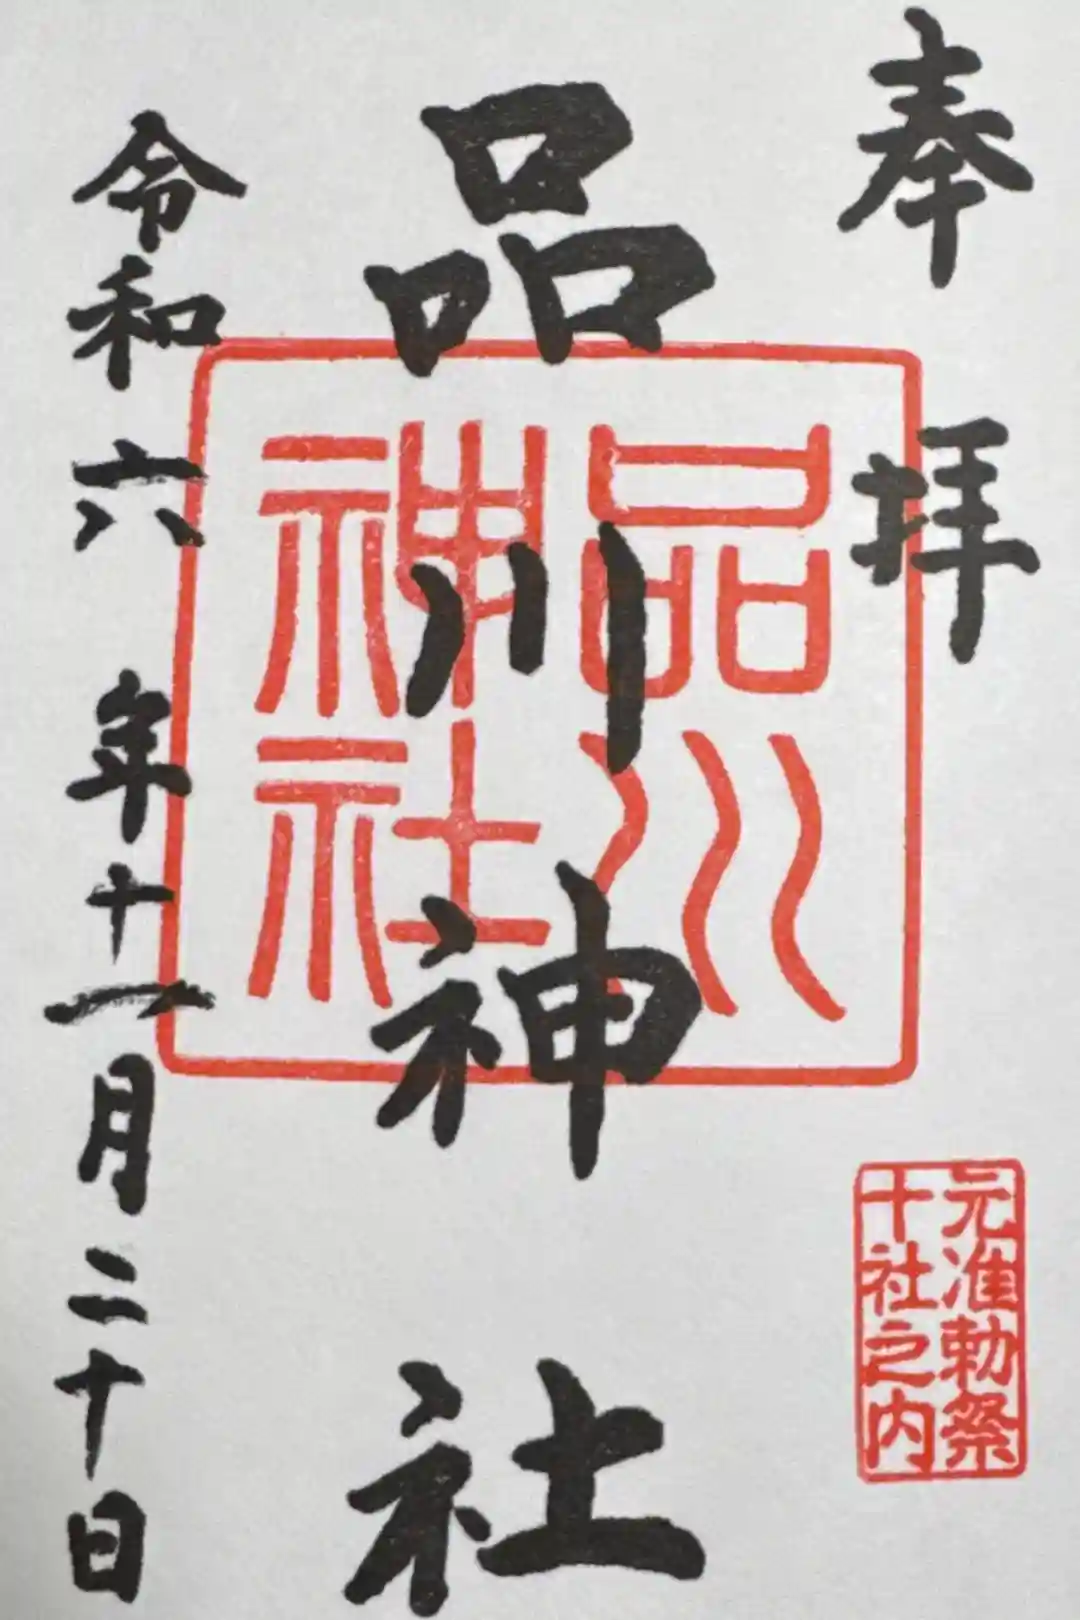 奉拝
元准勅祭
十社之内
品川神社
品川
神社
令和六年十一月二十日